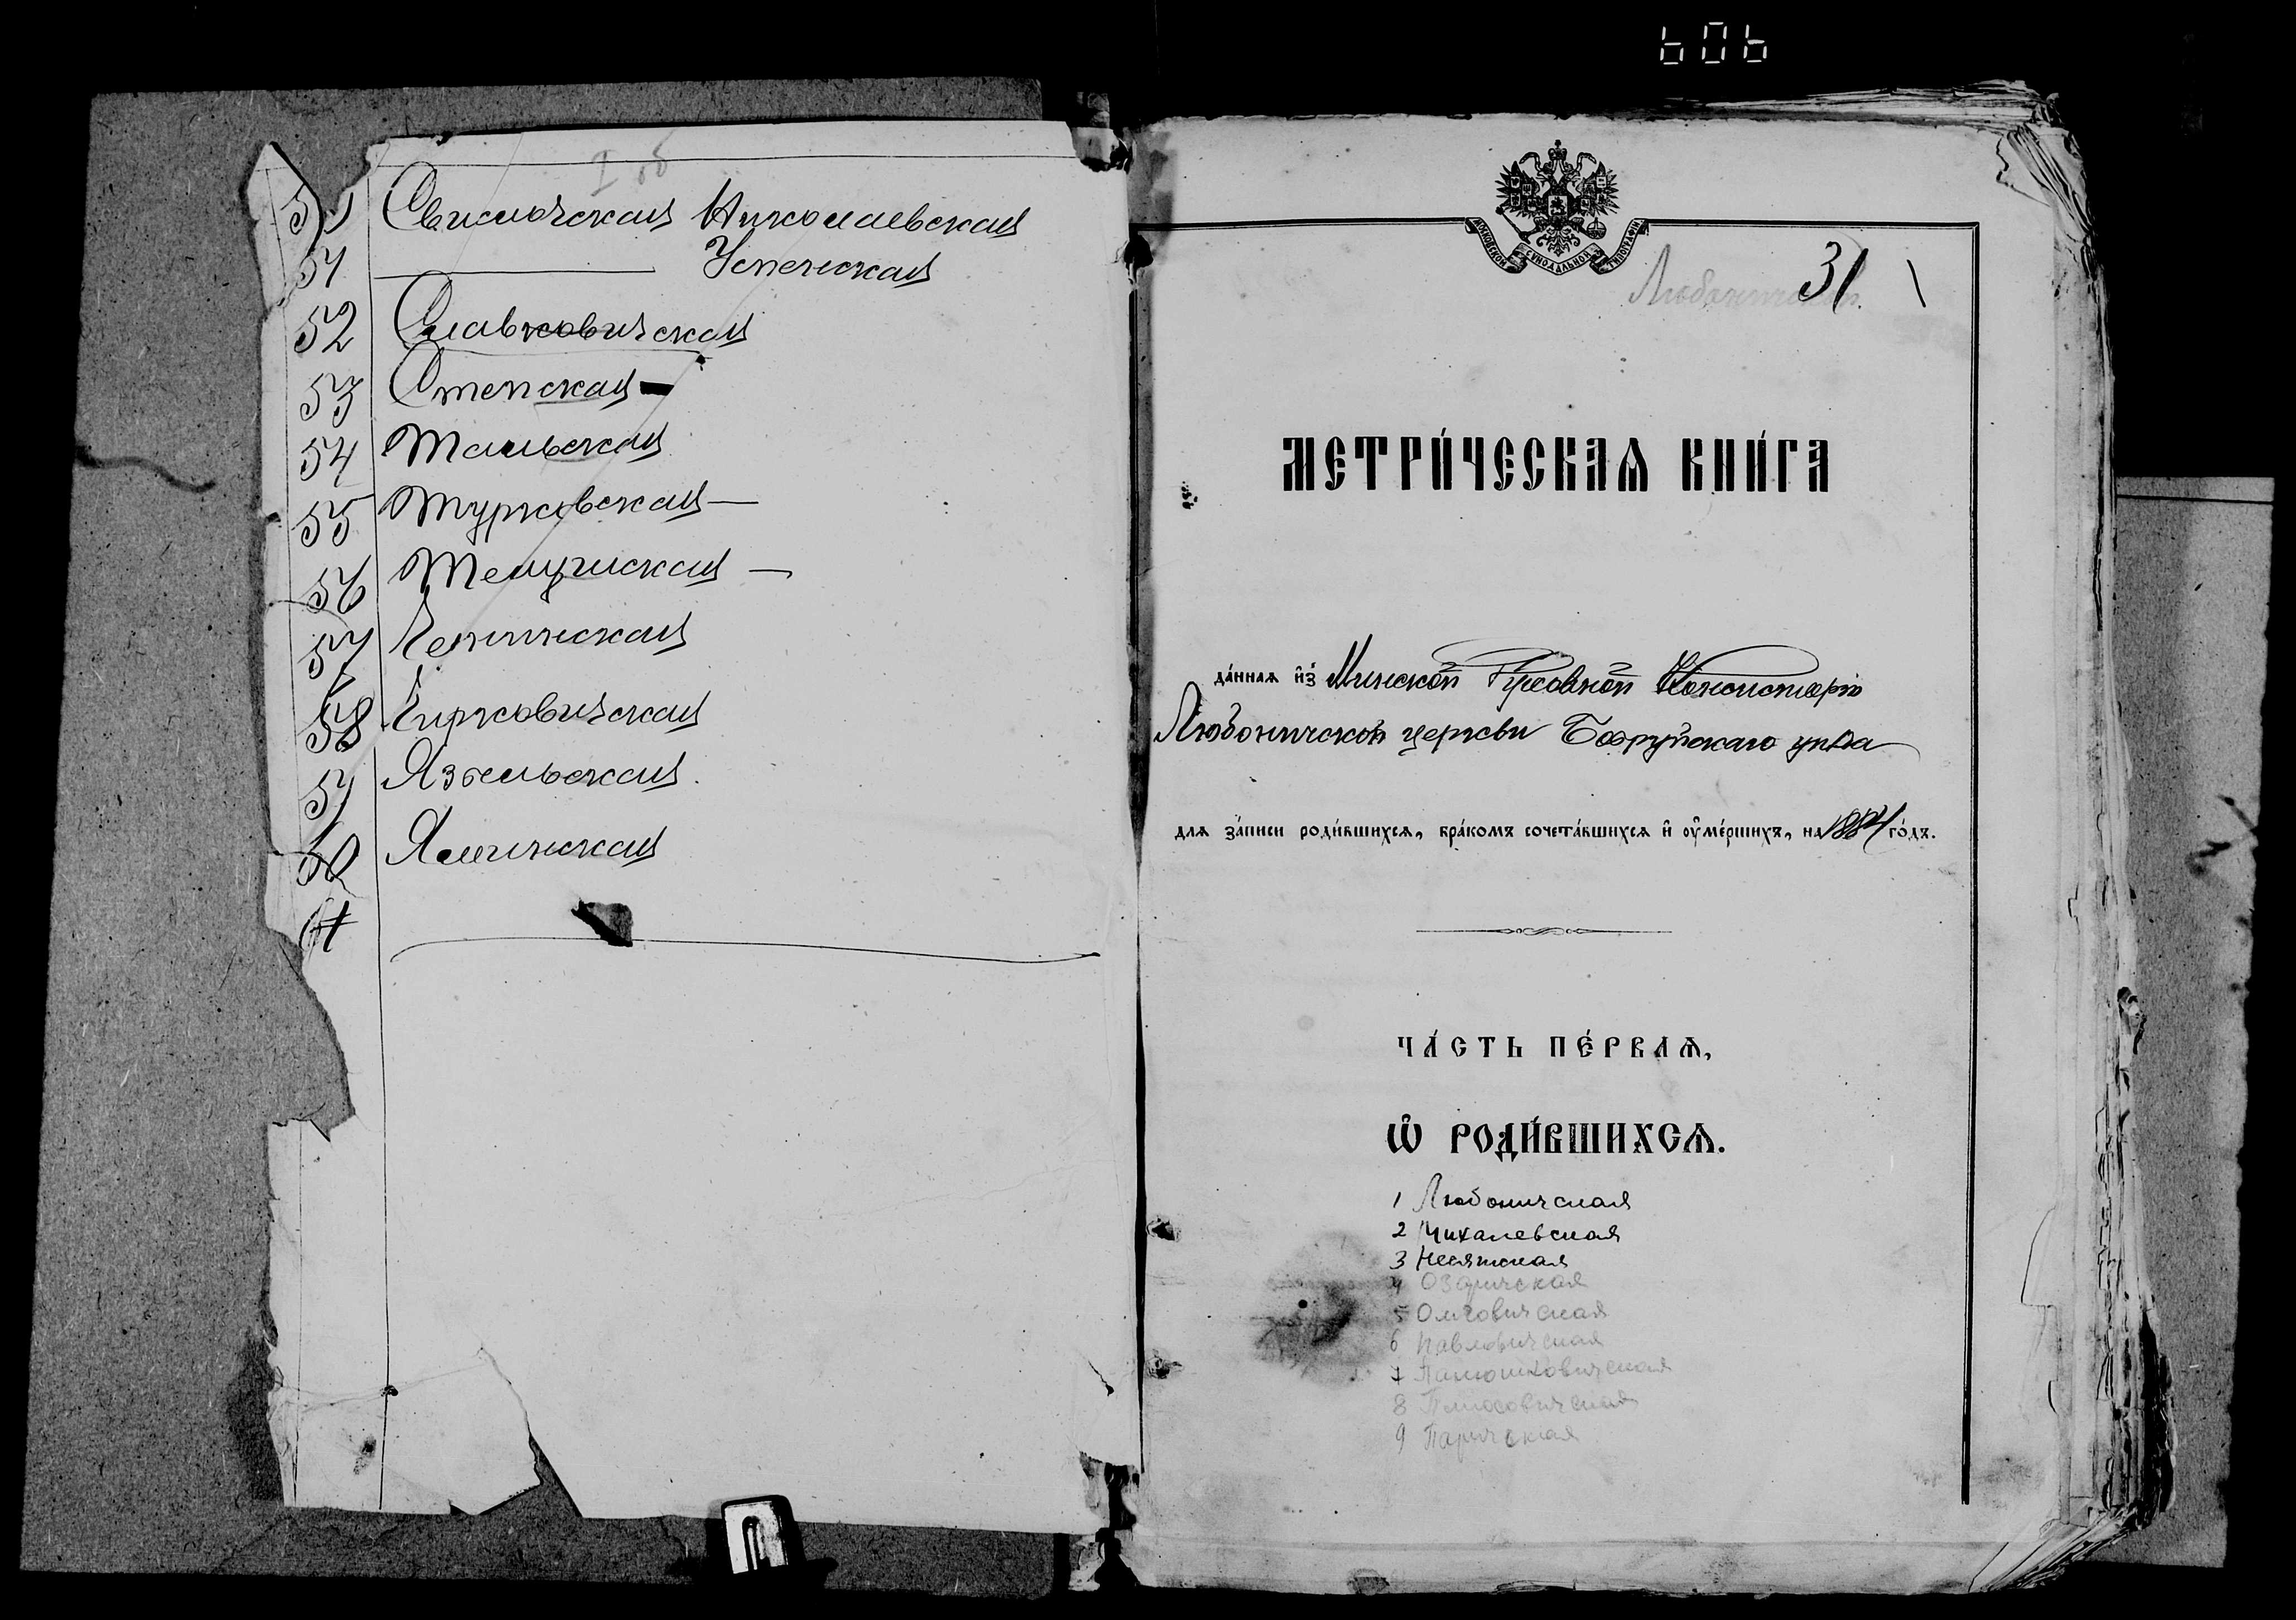 606
I об
50 Свислочская Николаевская
51 ——— Успенская
52 Славковичская
53 Степская —
54 Тальская
55 Турковская —
56 Телушская —
57 Чепинская
58 Чирковичская
59 Язвельская.
60 Яминская
61
МОСКОВСКОЙ СУНОДАЛЬНОЙ ТИПОГРАФІИ
31 1
МЕТРИ́ЧЕСКАѦ КНИ́ГА
да́ннаѧ и҆з̾ Минской Духовной Консисторіи
Любоничской церкви Бобруйскаго уѣзда
длѧ за́писи роди́вшихсѧ, бра́комъ сочета́вшихсѧ и҆ оу҆ме́ршихъ, на 1884 го́дъ.
ЧА́СТЬ ПЕ́РВАѦ,
Ѡ҆ РОДИ́ВШИХСѦ.
1 Любоничская
2 Михалевская
3 Несятская
4 Озаричская
5 Омговичская
6 Павловичская
7 Панюшковичская
8
9 Паричская